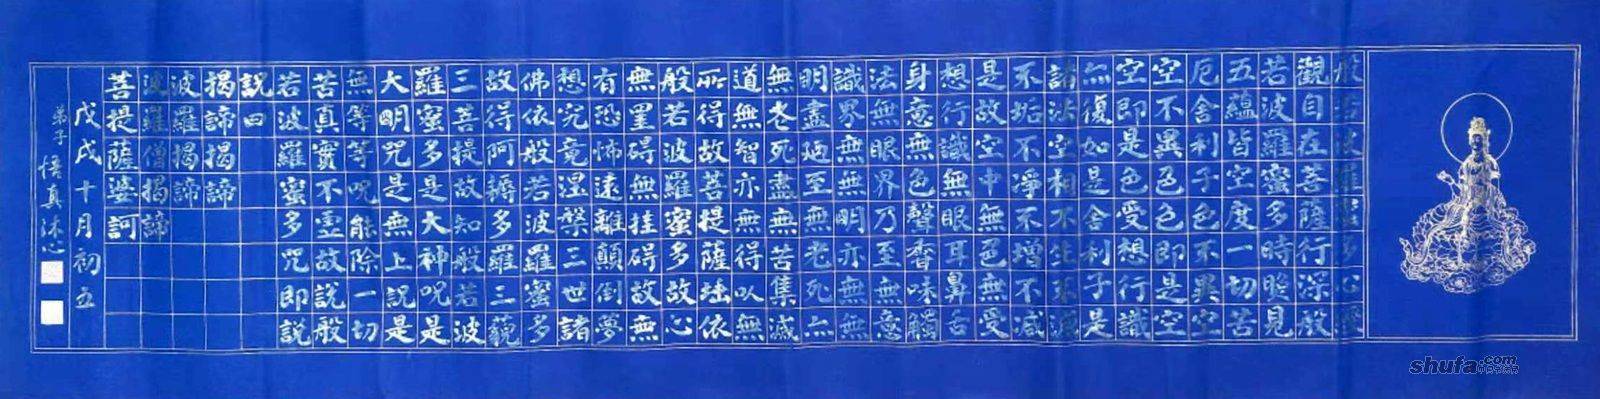 般若波羅蜜多心經
觀自在菩薩行深般
若波羅蜜多時照見
五蘊皆空度一切苦
厄舍利子色不異空
空不異色色即是空
空即是色受想行識
亦復如是舍利子是
諸法空相不生不滅
不垢不淨不增不減
是故空中無色無受
想行識無眼耳鼻舌
身意無色聲香味觸
法無眼界乃至無意
識界無無明亦無無
明盡廼至無老死亦
無老死盡無苦集滅
道無智亦無得以無
所得故菩提薩埵依
般若波羅蜜多故心
無罣碍無挂碍故無
有恐怖遠離顛倒夢
想究竟涅槃三世諸
佛依般若波羅蜜多
故得阿耨多羅三藐
三菩提故知般若波
羅蜜多是大神呪是
大明咒是無上説是
無等等呪能除一切
苦真實不虛故說般
若波羅蜜多咒即説
説曰
揭諦揭諦
波羅揭諦
波羅僧揭諦
菩提薩婆訶
戊戌十月初五
弟子 悟真沐心
shufa.com